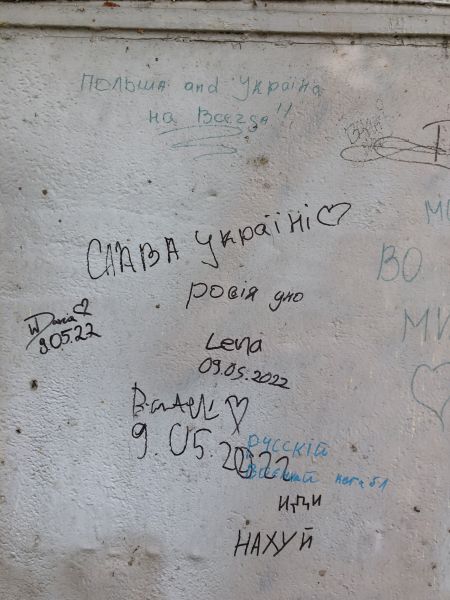 ПОЛЬША and Україна
на Всегда!!
СЛАВА Україні
росія дно
Daria
9.05.22
Lena
09.05.2022
9.05.2022
РУССКІЙ
ВОЄННИЙ
ИДИ
НАХУЙ
МИ
ВО
МИ